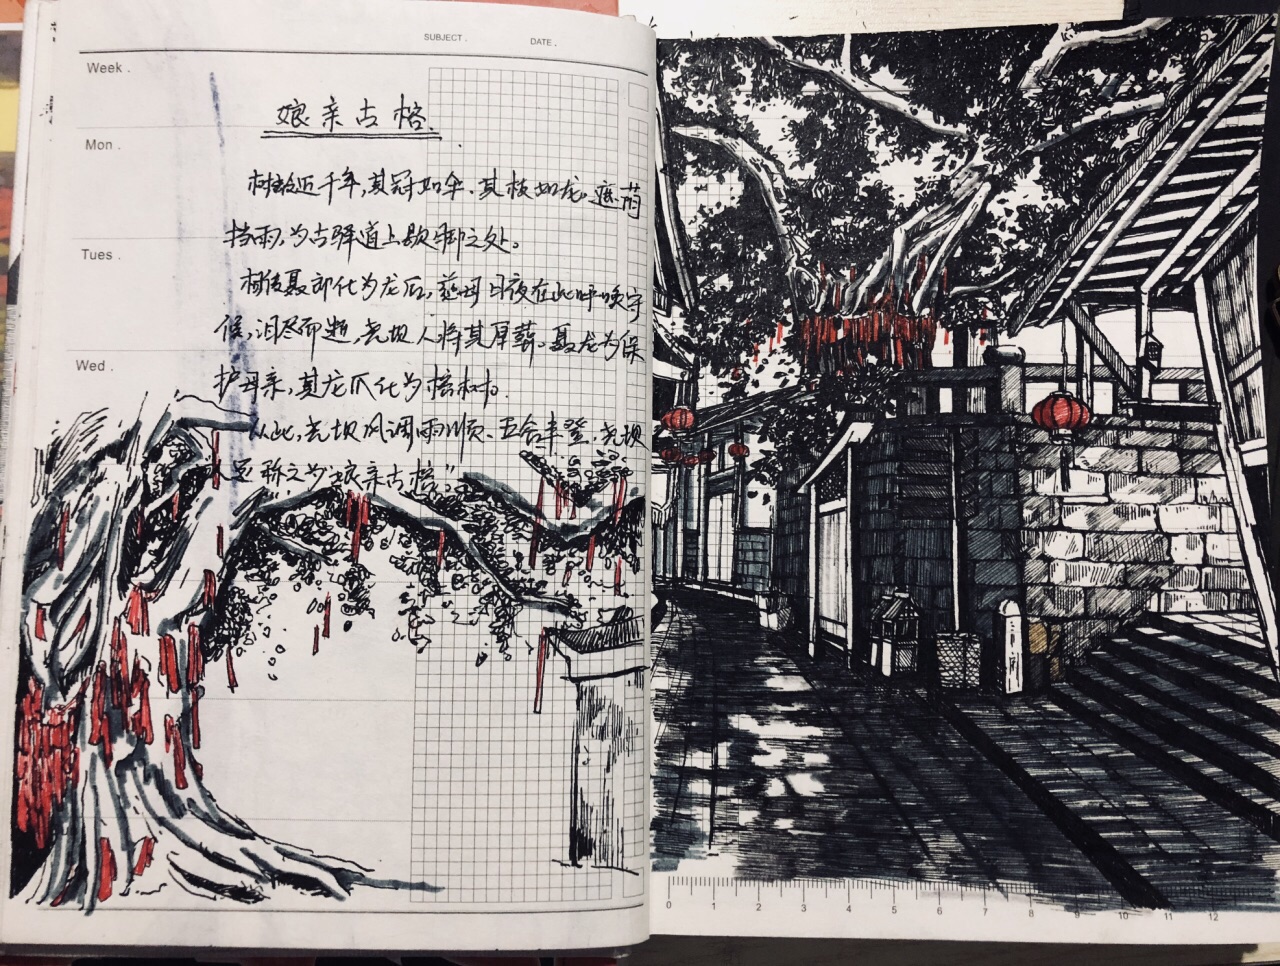 SUBJECT .
DATE .
Week .
娘亲古榕
Mon .
树龄近千年,其冠如伞、其枝如龙,遮荫
挡雨,为古驿道上歇脚之处。
Tues .
相传聂郎化为龙后,慈母日夜在此呼唤守
候,泪尽而逝,尧坝人将其厚葬。聂龙为保
Wed .
护母亲,其龙爪化为榕树。
从此,尧坝风调雨顺、五谷丰登,尧坝
人足称之为“娘亲古榕”
0 1 2 3 4 5 6 7 8 9 10 11 12